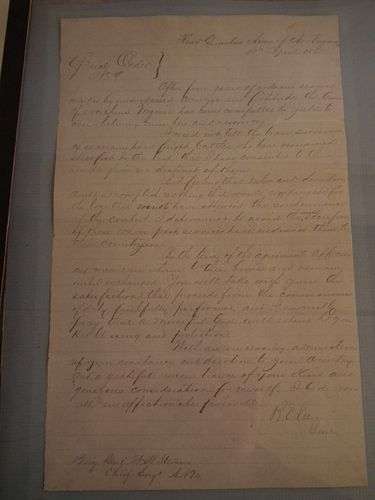 Head Quarters Army of
10th April 1865
General Orders
No 9
After four years of arduous service
marked by unsurpassed courage and fortitude the Army
of Northern Virginia has been compelled to yield to
overwhelming numbers and resources
I need not tell the brave survivors
of so many hard fought battles who have remained
steadfast to the last that I have consented to this
result from no distrust of them
But feeling that valor and devotion
could accomplish nothing that would compensate for
the loss that must have attended the continuance
of the contest I determined to avoid the sacrifice
of those whose past services have endeared them to
their countrymen
By the terms of the agreement officers
and men can return to their homes and remain
until exchanged. You will take with you the
satisfaction that proceeds from the consciousness
of duty faithfully performed and I earnestly
pray that a Merciful God will extend to you
His blessing and protection
With an unceasing admiration
of your constancy and devotion to your Country
and a grateful remembrance of your kind and
generous consideration for myself I bid you
all an affectionate farewell
R E Lee
Genl
Brig Genl W H Stevens
Chief Engr A N Va